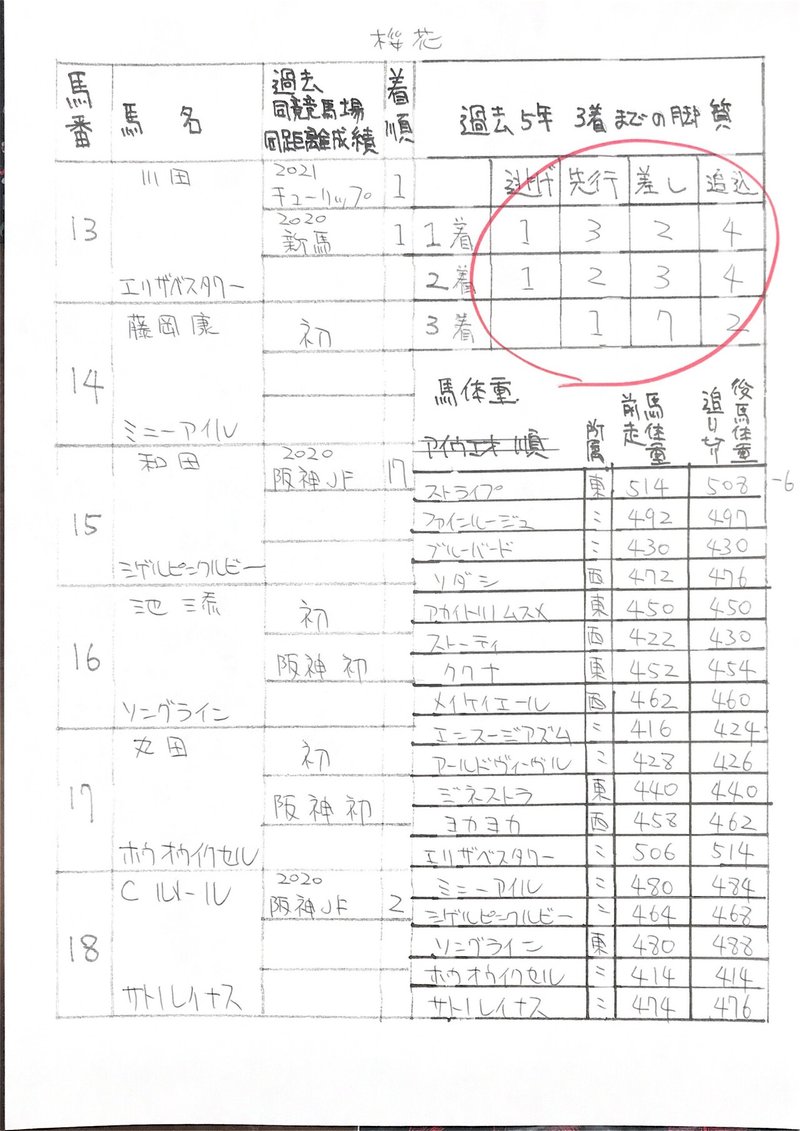 桜花
馬番 馬名 過去同競馬場同距離成績 着順
13 川田 2021 チューリップ 1
2020 新馬 1
エリザベスタワー
14 藤岡康 初
ミニーアイル
15 和田 2020 阪神JF 17
ミゲルピンクルビー
16 池添 初
阪神初
ソングライン
17 丸田 初
阪神初
ホウオウイクセル
18 C ルメール 2020 阪神JF 2
サトノレイナス
過去5年 3着までの脚質
逃げ 先行 差し 追込
1着 1 3 2 4
2着 1 2 3 4
3着 1 7 2
馬体重
アイウエオ順 所属 前走馬体重 追い切り後馬体重
ストライプ 東 514 508 -6
ファインルージュ 〃 492 497
ブルーバード 〃 430 430
ソダシ 西 472 476
アカイトリノムスメ 東 450 450
ストゥーティ 西 422 430
ククナ 東 452 454
メイケイエール 西 462 460
エンスージアズム 〃 416 424
アールドヴィーヴル 〃 428 426
ジネストラ 東 440 440
ヨカヨカ 西 458 462
エリザベスタワー 〃 506 514
ミニーアイル 〃 480 484
ミゲルピンクルビー 〃 464 468
ソングライン 東 480 488
ホウオウイクセル 〃 414 414
サトノレイナス 〃 474 476